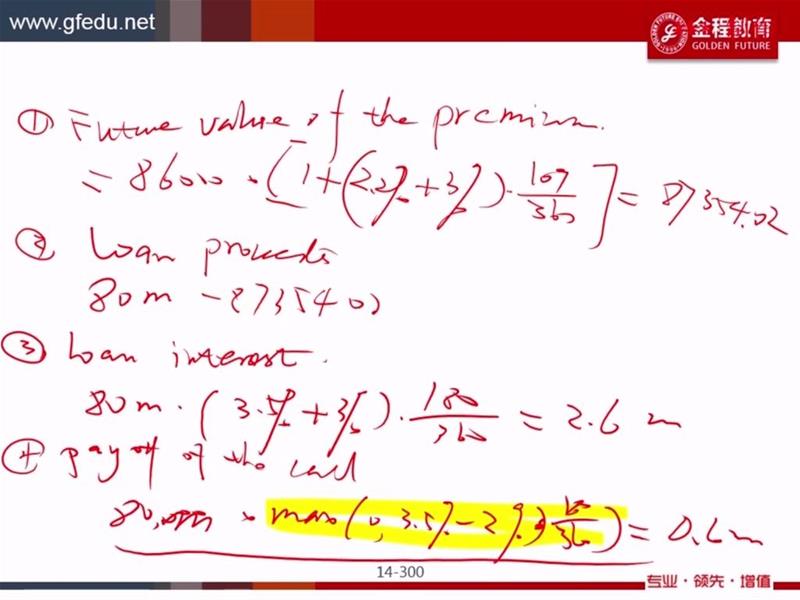 www.gfedu.net
金程教育
GOLDEN FUTURE
① Future value of the premium.
= 86000 · [1+(2.2%+3%)·109/360] = 87354.02
② Loan proceeds
80m - 87354.02
③ Loan interest.
80m · (3.5%+3%)·180/360 = 2.6m
④ payoff of the call
max(0, 3.5%-2%) = 0.6m
14-300
专业·领先·增值